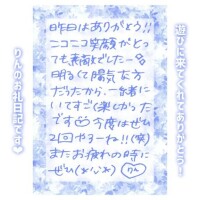 遊びに来てくれてありがとう！
昨日はありがとう!!
ニコニコ笑顔がとっ
ても素敵でした
明るくて陽気な方
だったから、一緒に
いてすごく楽しかった
です
今度はぜひ
2回やろーね!!(笑)
またお疲れの時に
ぜひ
りん
りんのお礼日記です♥